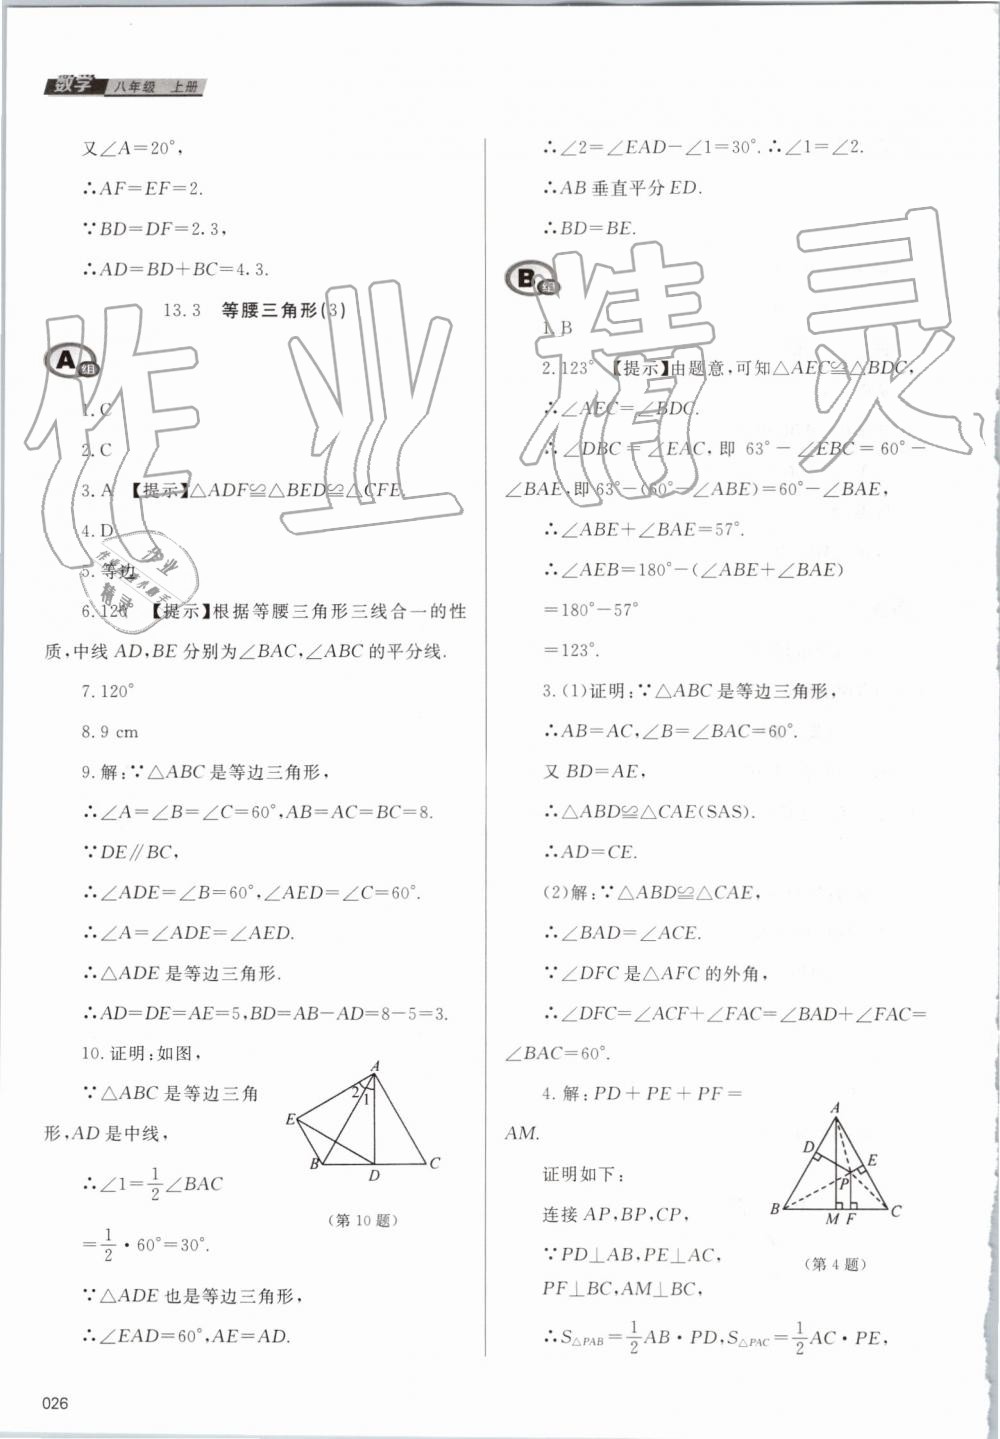 数学 八年级 上册
又∠A=20°,
∴AF=EF=2.
∵BD=DF=2.3,
∴AD=BD+BC=4.3.
13.3 等腰三角形(3)
A组
1.C
2.C
3.A 【提示】△ADF≌△BED≌△CFE.
4.D
5.等边
6.120 【提示】根据等腰三角形三线合一的性
质,中线 AD,BE 分别为∠BAC,∠ABC 的平分线.
7.120°
8.9 cm
9.解:∵△ABC 是等边三角形,
∴∠A=∠B=∠C=60°,AB=AC=BC=8.
∵DE∥BC,
∴∠ADE=∠B=60°,∠AED=∠C=60°.
∴∠A=∠ADE=∠AED.
∴△ADE 是等边三角形.
∴AD=DE=AE=5,BD=AB-AD=8-5=3.
10.证明:如图,
∵△ABC 是等边三角
形,AD 是中线,
∴∠1=1/2∠BAC
=1/2·60°=30°.
∵△ADE 也是等边三角形,
∴∠EAD=60°,AE=AD.
A
2
1
E
B
D
C
(第 10 题)
∴∠2=∠EAD-∠1=30°.∴∠1=∠2.
∴AB 垂直平分 ED.
∴BD=BE.
B组
1.B
2.123° 【提示】由题意,可知△AEC≌△BDC,
∴∠AEC=∠BDC.
∴∠DBC=∠EAC,即 63°-∠EBC=60°-
∠BAE,即 63°-(60°-∠ABE)=60°-∠BAE,
∴∠ABE+∠BAE=57°.
∴∠AEB=180°-(∠ABE+∠BAE)
=180°-57°
=123°.
3.(1)证明:∵△ABC 是等边三角形,
∴AB=AC,∠B=∠BAC=60°.
又 BD=AE,
∴△ABD≌△CAE(SAS).
∴AD=CE.
(2)解:∵△ABD≌△CAE,
∴∠BAD=∠ACE.
∵∠DFC 是△AFC 的外角,
∴∠DFC=∠ACF+∠FAC=∠BAD+∠FAC=
∠BAC=60°.
4.解:PD+PE+PF=
AM.
证明如下:
连接 AP,BP,CP,
∵PD⊥AB,PE⊥AC,
PF⊥BC,AM⊥BC,
∴S△PAB=1/2AB·PD,S△PAC=1/2AC·PE,
A
D
E
P
B
M F
C
(第 4 题)
026
作业精灵
作业
精灵